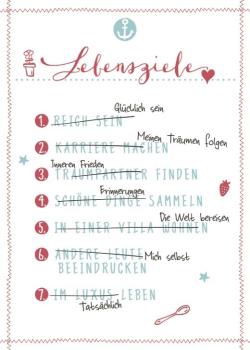 Lebensziele
Glücklich sein
1. REICH SEIN
Meinen Träumen folgen
2. KARRIERE MACHEN
Inneren Frieden
3. TRAUMPARTNER FINDEN
Erinnerungen
4. SCHÖNE DINGE SAMMELN
Die Welt bereisen
5. IN EINER VILLA WOHNEN
6. ANDERE LEUTE Mich selbst
BEEINDRUCKEN
7. IM LUXUS LEBEN
Tatsächlich